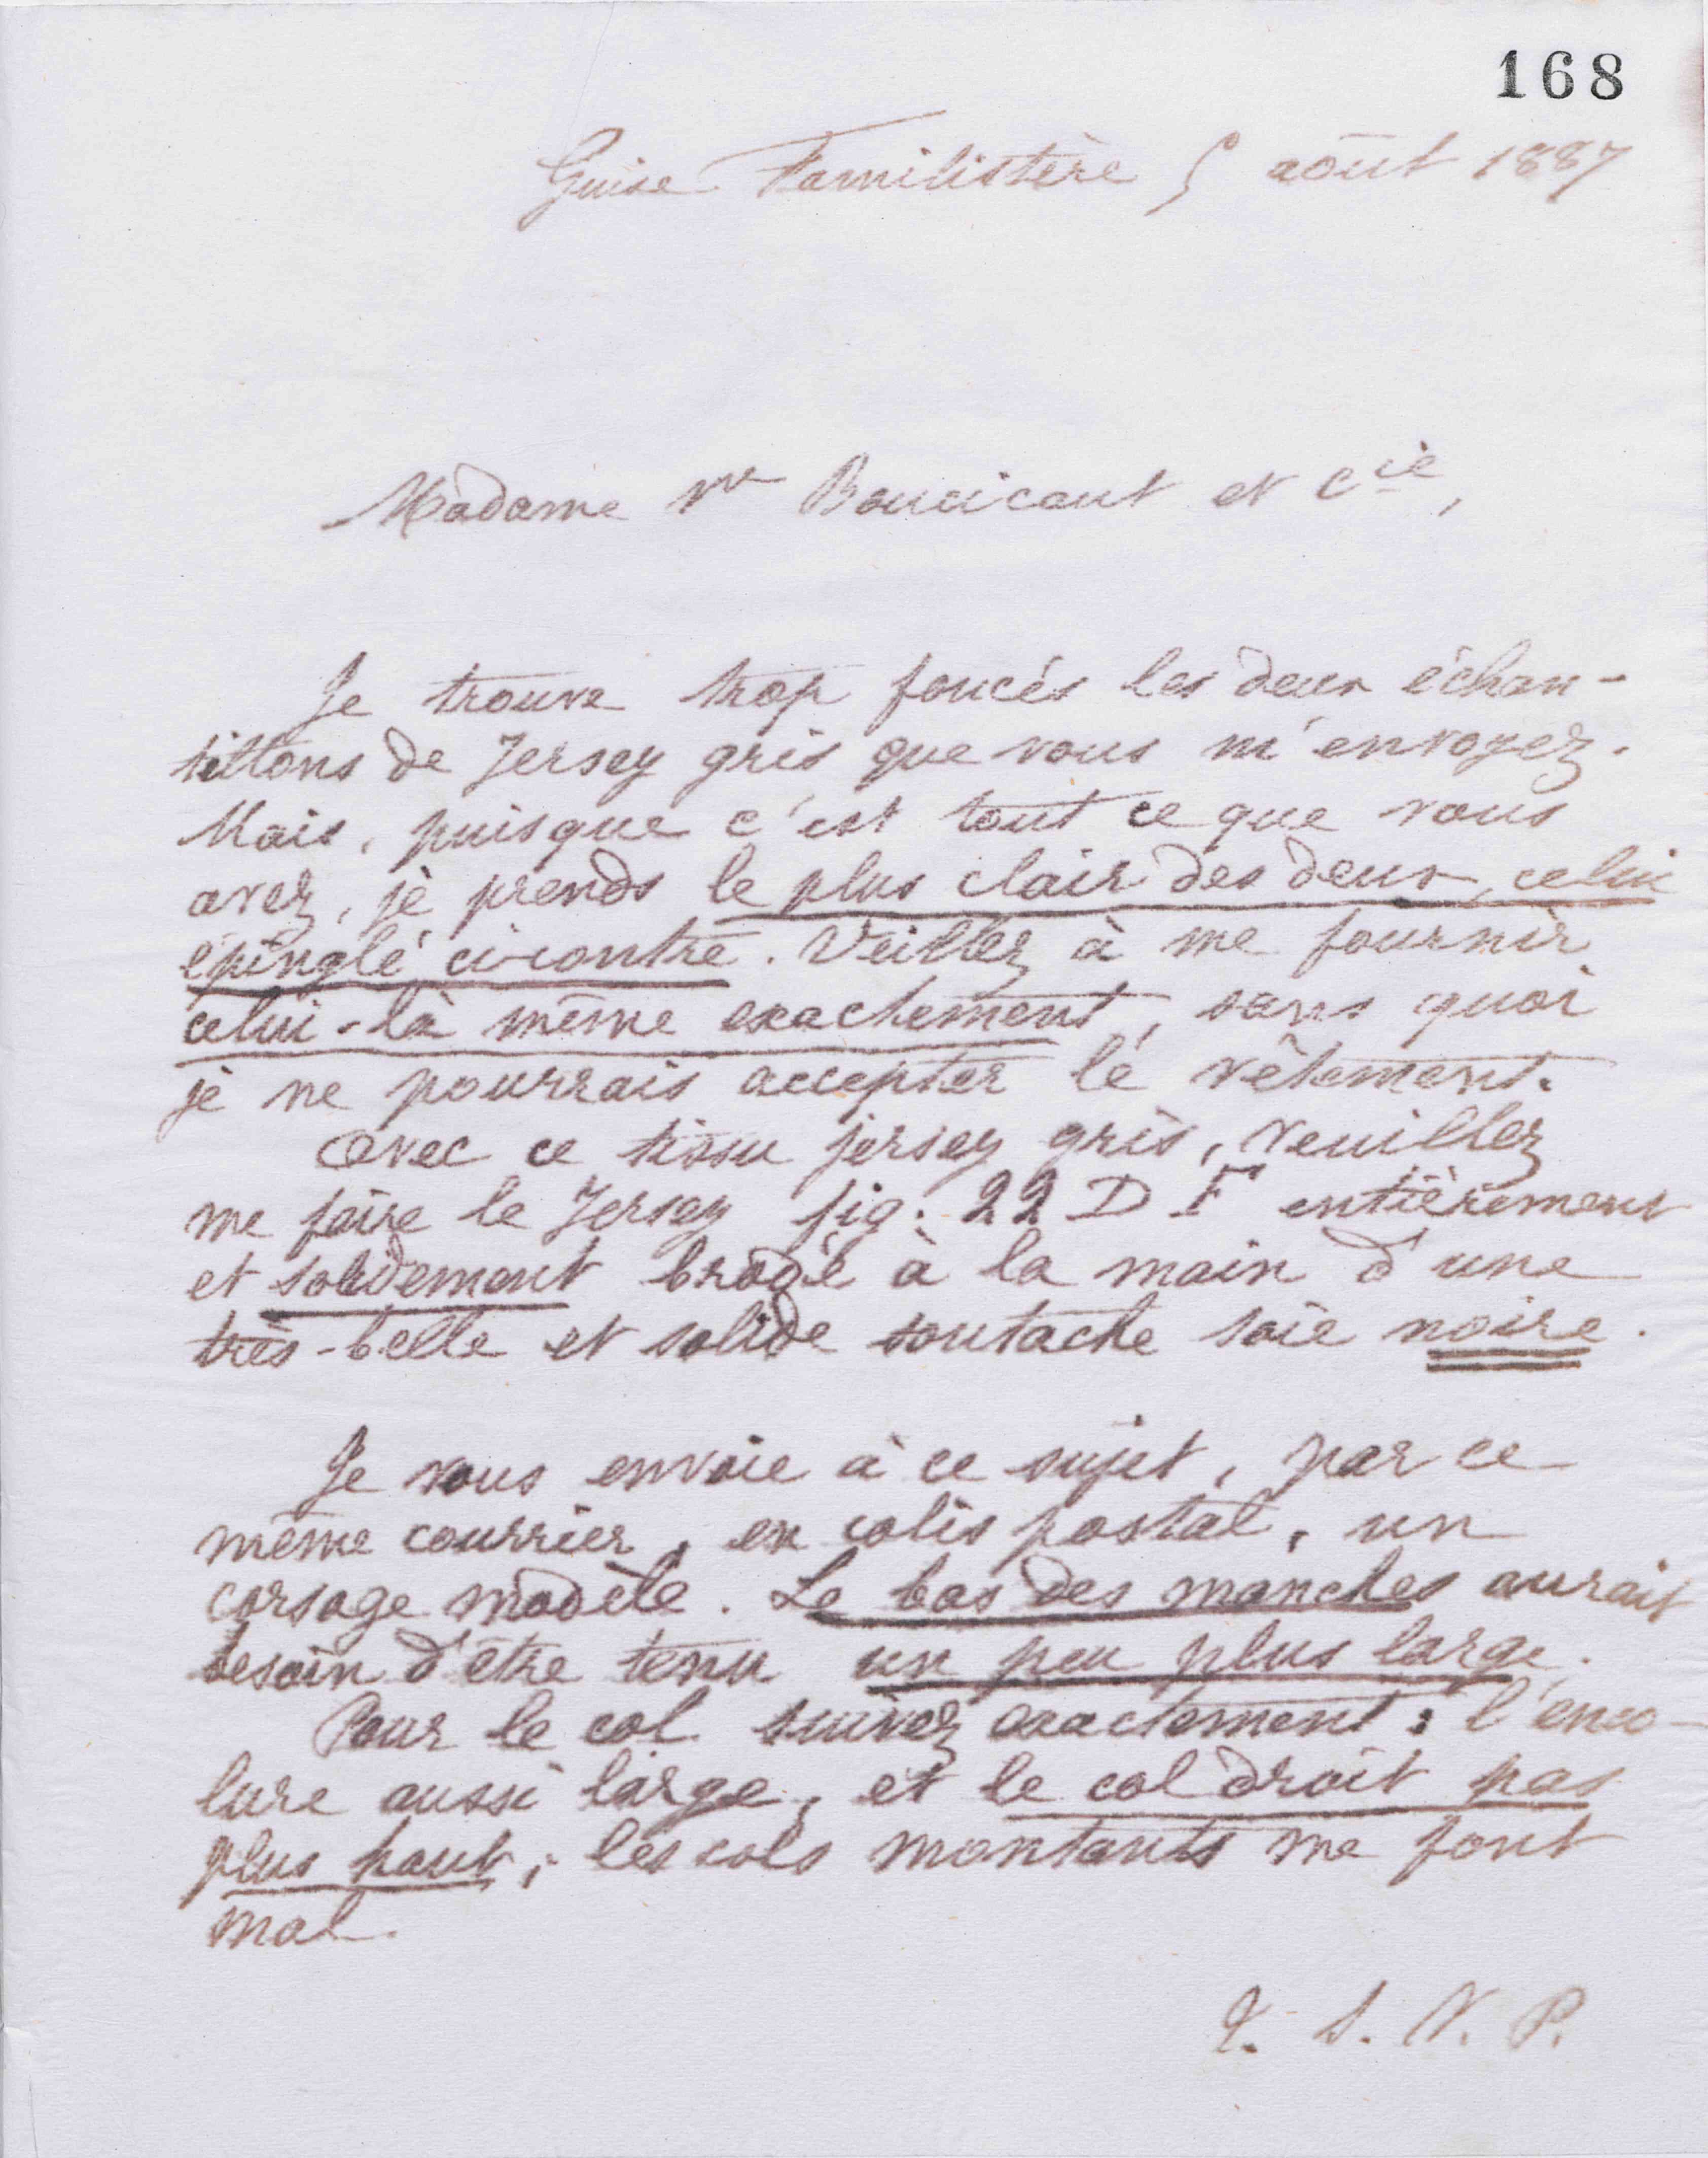 168
Guise Familistère 5 août 1887
Madame Vve Boucicaut et Cie,
Je trouve trop foncés les deux échan-
tillons de Jersey gris que vous m'envoyez.
Mais, puisque c'est tout ce que vous
avez, je prends le plus clair des deux, celui
épinglé ci-contre. Veillez à me fournir
celui-là même exactement, sans quoi
je ne pourrais accepter le vêtement.
Avec ce tissu jersey gris, veuillez
me faire le Jersey fig. 22 D F entièrement
et solidement brodé à la main d'une
très-belle et solide soutache soie noire.
Je vous envoie à ce sujet, par ce
même courrier, en colis postal, un
corsage modèle. Le bas des manches aurait
besoin d'être tenu un peu plus large.
Pour le col suivez exactement : l'enco-
lure aussi large, et le col droit pas
plus haut ; les cols montants me font
mal.
T. S. V. P.